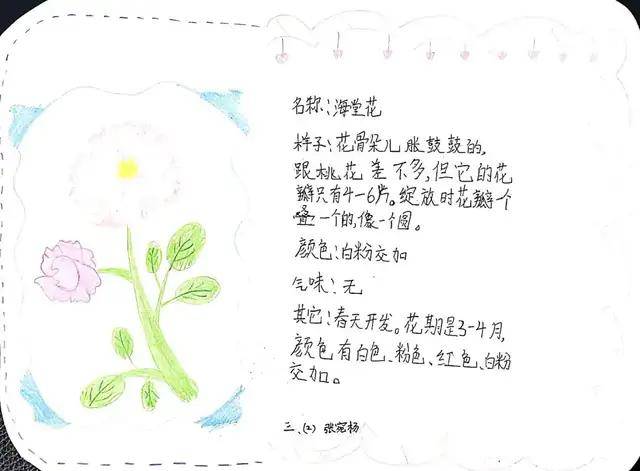 名称:海堂花
样子:花骨朵儿胀鼓鼓的,
跟桃花差不多,但它的花
瓣只有4-6片。绽放时花瓣一个
叠一个的,像一个圆。
颜色:白粉交加
气味:无
其它:春天开发。花期是3-4月,
颜色有白色、粉色、红色、白粉
交加。
三、(2) 张宛杨